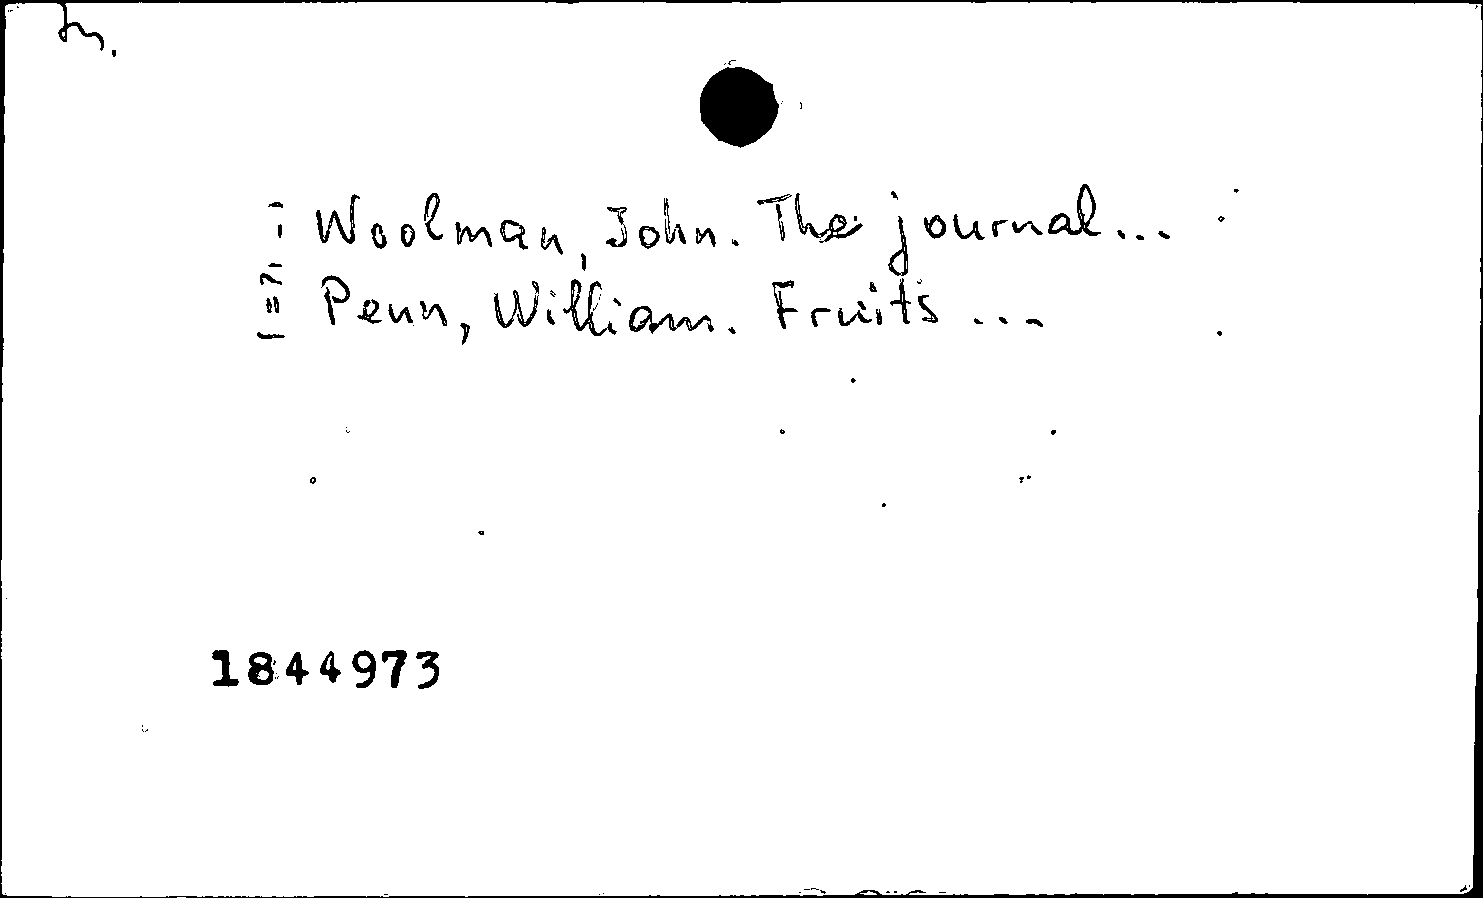 Woolman, John. The journal...
Penn, William. Fruits ...
1844973